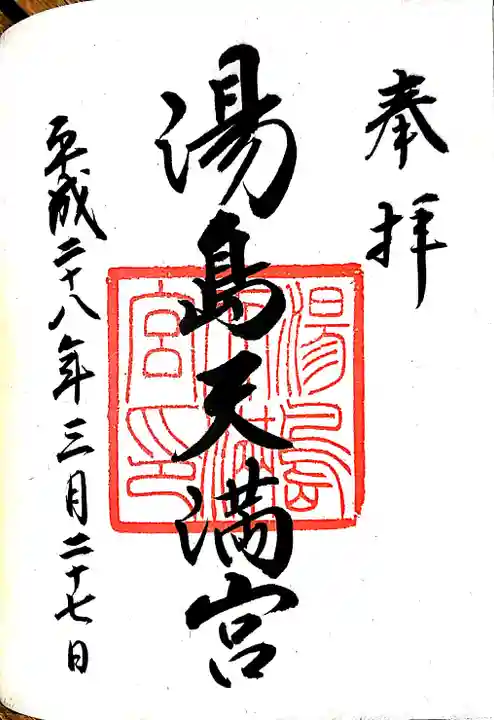 奉拝
湯島天満宮
湯島天満宮印
平成二十八年三月二十七日